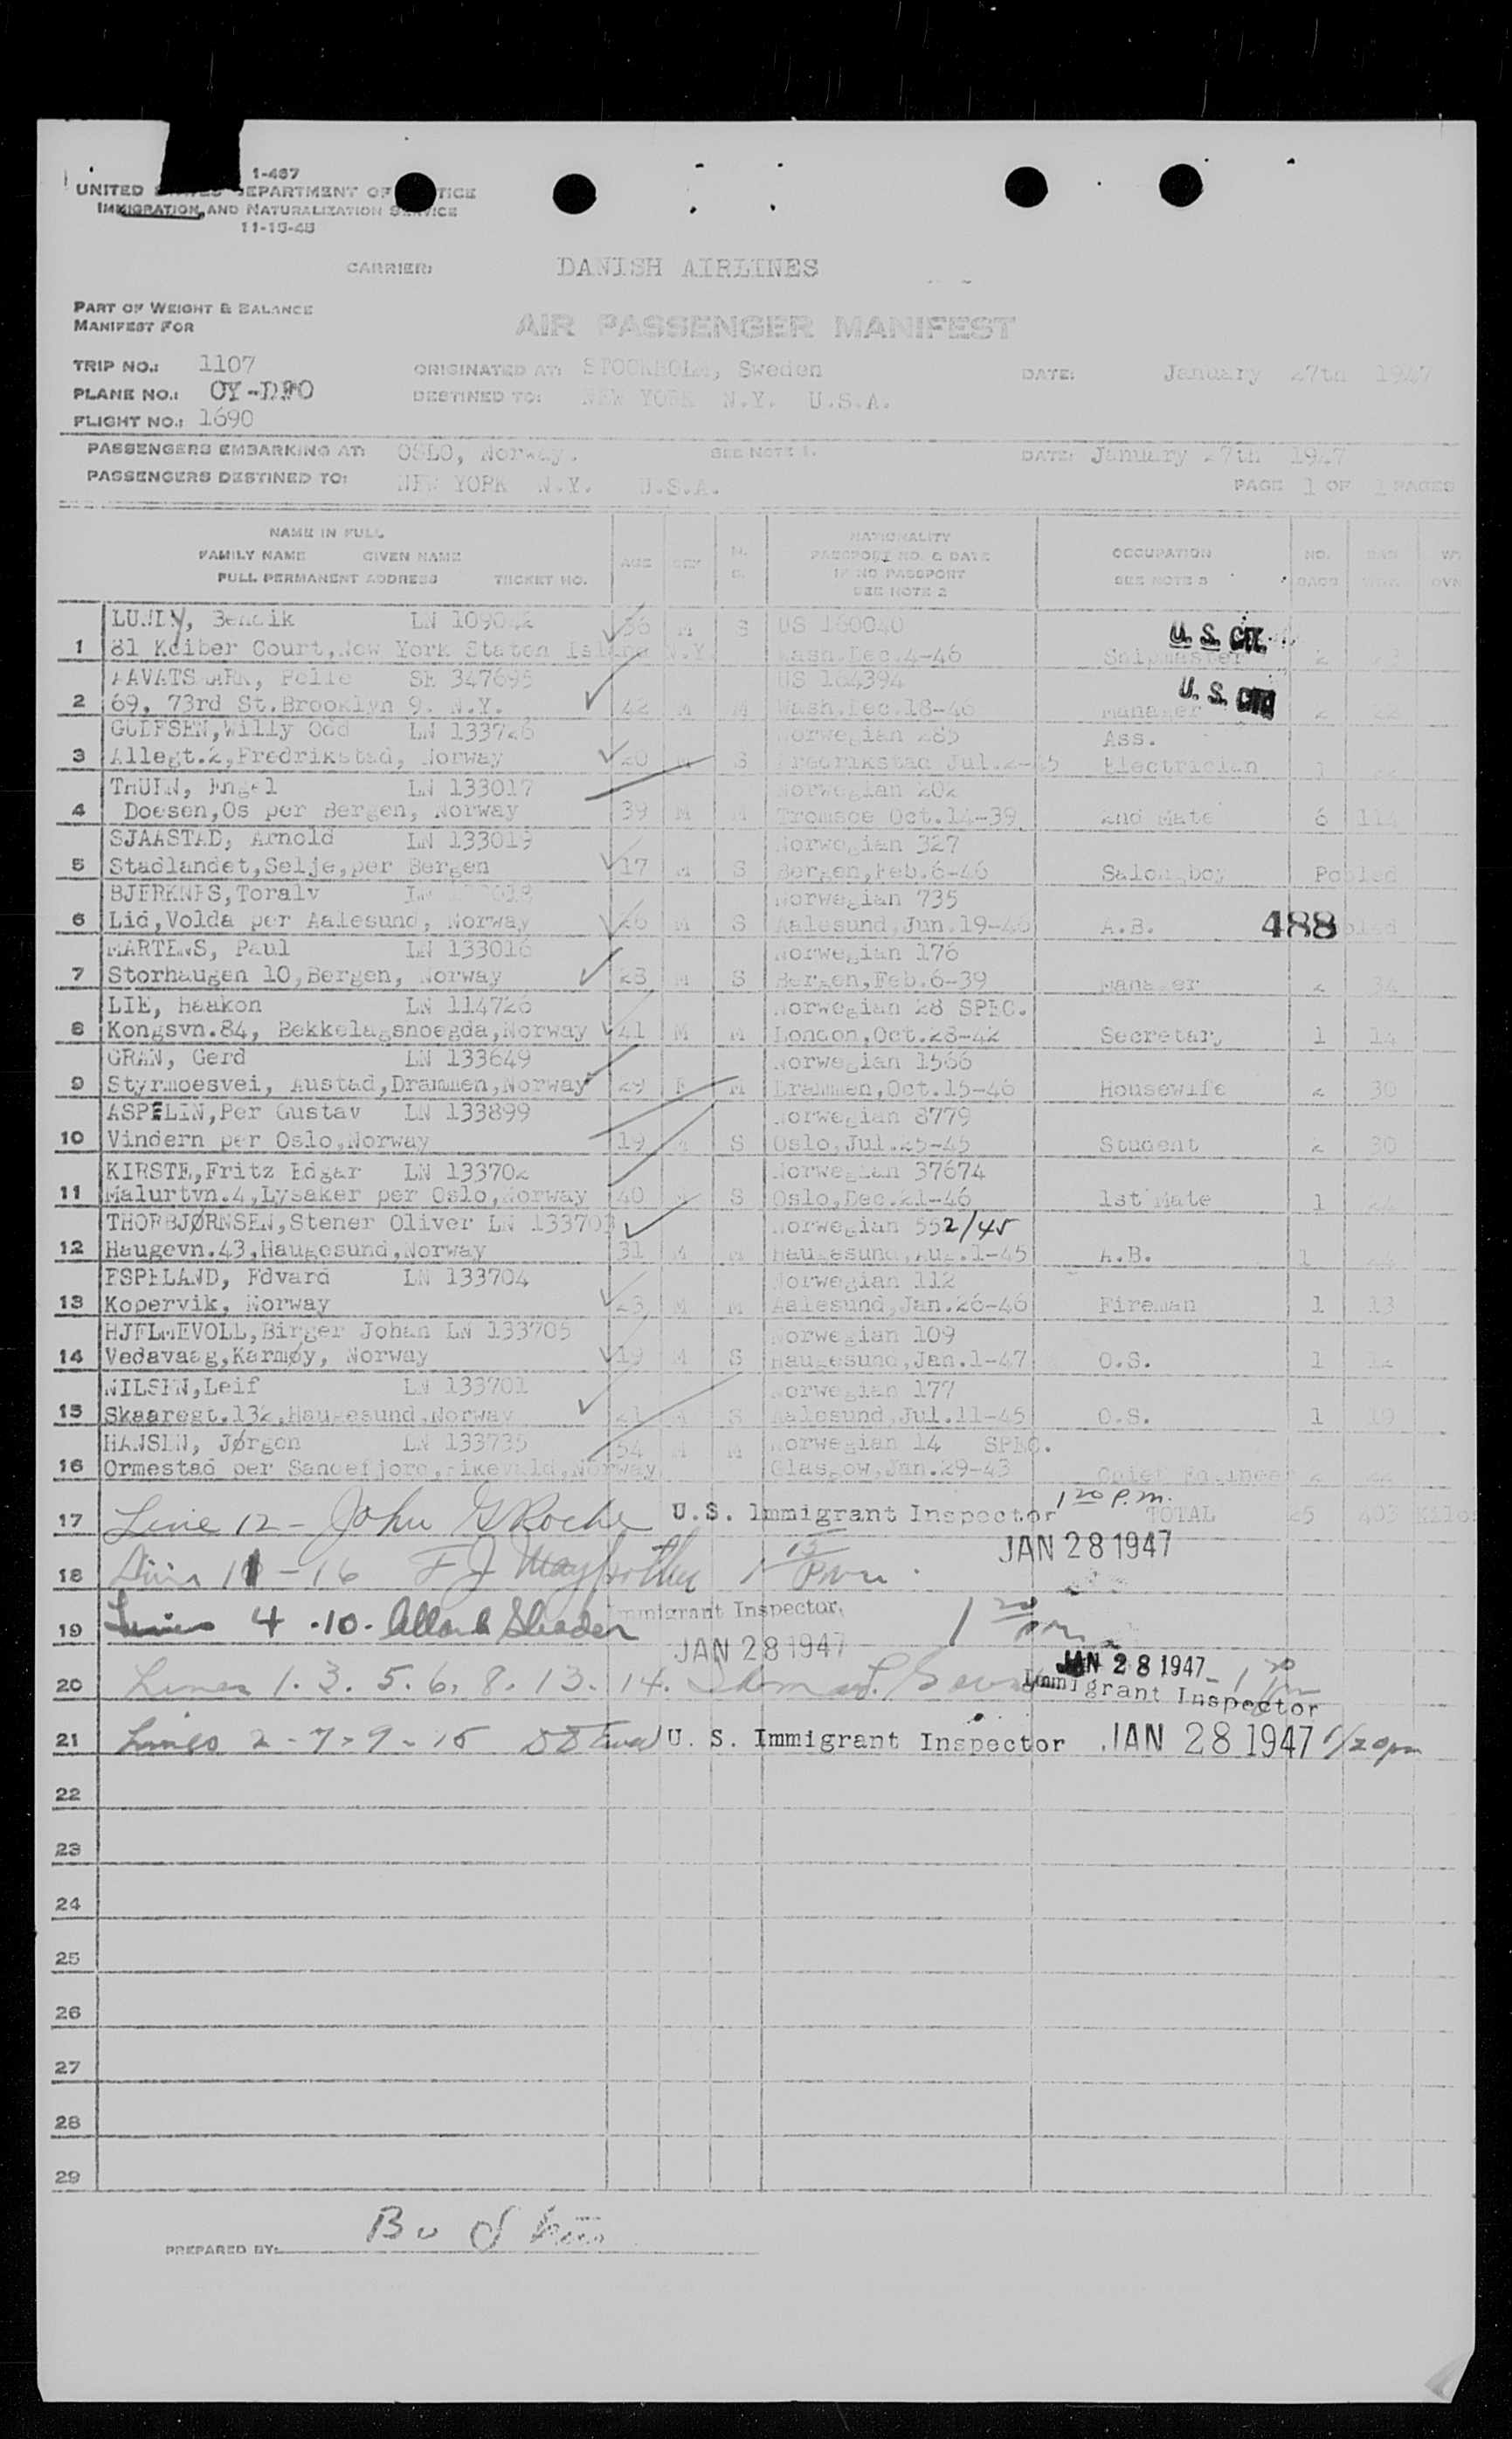 1-467
UNITED STATES DEPARTMENT OF JUSTICE
IMMIGRATION AND NATURALIZATION SERVICE
11-15-45
CARRIER: DANISH AIRLINES
PART OF WEIGHT & BALANCE
MANIFEST FOR
AIR PASSENGER MANIFEST
TRIP NO.: 1107 ORIGINATED AT: STOCKHOLM, Sweden DATE: January 27th 1947
PLANE NO.: DESTINED TO: NEW YORK N.Y. U.S.A.
FLIGHT NO.: 1690
PASSENGERS EMBARKING AT: OSLO, Norway. SEE NOTE 1. DATE: January 27th 1947
PASSENGERS DESTINED TO: NEW YORK N.Y. U.S.A. PAGE 1 OF 1 PAGES
NAME IN FULL
FAMILY NAME GIVEN NAME
FULL PERMANENT ADDRESS TICKET NO.
AGE SEX M. S.
NATIONALITY
PASSPORT NO. & DATE
IF NO PASSPORT
SEE NOTE 2
OCCUPATION
SEE NOTE 3
NO. BAGS
BAG WGT.
WT OVN
LUNDY, Bendik LN 109042 36 M S US 160040 U. S. CIT.
1 81 Keiber Court, New York Staten Island N.Y. Wash.Dec.4-46 Shipmaster 2
AAVATSMARK, Pelle SE 347695 US 164394 U. S. CIT
2 69, 73rd St.Brooklyn 9. N.Y. 42 M M Wash.Dec.18-46 Manager 2 22
Willy Odd LN 133726 Norwegian 285 Ass.
3 Allegt.2,Fredrikstad, Norway 20 M S Fredrikstad Jul.2-45 Electrician 1 22
Engel LN 133017 Norwegian 202
4 Doesen,Os per Bergen, Norway 39 M M Tromsoe Oct.14-39 2nd Mate 6 114
SJAASTAD, Arnold LN 133019 Norwegian 327
5 Stadlandet,Selje,per Bergen 17 M S Bergen,Feb.6-46 Salongboy Pooled
BJERKNES,Toralv LN 133018 Norwegian 735
6 Lid,Volda per Aalesund, Norway 26 M S Aalesund,Jun.19-46 A.B. 488 Pooled
MARTENS, Paul LN 133016 Norwegian 176
7 Storhaugen 10,Bergen, Norway 28 M S Bergen,Feb.6-39 Manager 2 34
LIE, Haakon LN 114726 Norwegian 28 SPEC.
8 Kongsvn.84, Bekkelagshoegda,Norway 41 M M London,Oct.28-42 Secretary 1 14
GRAN, Gerd LN 133649 Norwegian 1566
9 Styrmoesvei, Austad,Drammen,Norway 29 F M Drammen,Oct.15-46 Housewife 2 30
ASPELIN,Per Gustav LN 133899 Norwegian 8779
10 Vindern per Oslo,Norway 19 M S Oslo,Jul.25-45 Student 2 30
KIRSTE,Fritz Edgar LN 133702 Norwegian 37674
11 Malurtvn.4,Lysaker per Oslo,Norway 40 M S Oslo,Dec.21-46 1st Mate 1
THORBJØRNSEN,Stener Oliver LN 133703 Norwegian 552/45
12 Haugevn.43,Haugesund,Norway 31 M M Haugesund,Aug.1-45 A.B. 1
ESPELAND, Edvard LN 133704 Norwegian 112
13 Kopervik, Norway 23 M M Aalesund,Jan.26-46 Fireman 1 13
HJELMEVOLL,Birger Johan LN 133705 Norwegian 109
14 Vedavaag,Karmøy, Norway 19 M S Haugesund,Jan.1-47 O.S. 1 12
NILSEN,Leif LN 133701 Norwegian 177
15 Skaaregt.132,Haugesund,Norway 21 M S Aalesund,Jul.11-45 O.S. 1 19
HANSEN, Jørgen LN 133735 54 M M Norwegian 14 SPEC.
16 Ormestad per Sandefjord, Norway Glasgow,Jan.29-43 Chief Engineer 2 22
17 Line 12 - John G Roche U.S. Immigrant Inspector 1 20 P.m. TOTAL 25 403 Kilos
JAN 28 1947
18 11 - 16 F J
19 Lines 4 . 10 . Immigrant Inspector, 1 20 pm
JAN 28 1947
20 Lines 1. 3. 5. 6. 8. 13. 14. JAN 28 1947
Immigrant Inspector
21 Lines 2 - 7 - 9 - 15 U. S. Immigrant Inspector JAN 28 1947 1/20pm
22
23
24
25
26
27
28
29
PREPARED BY: